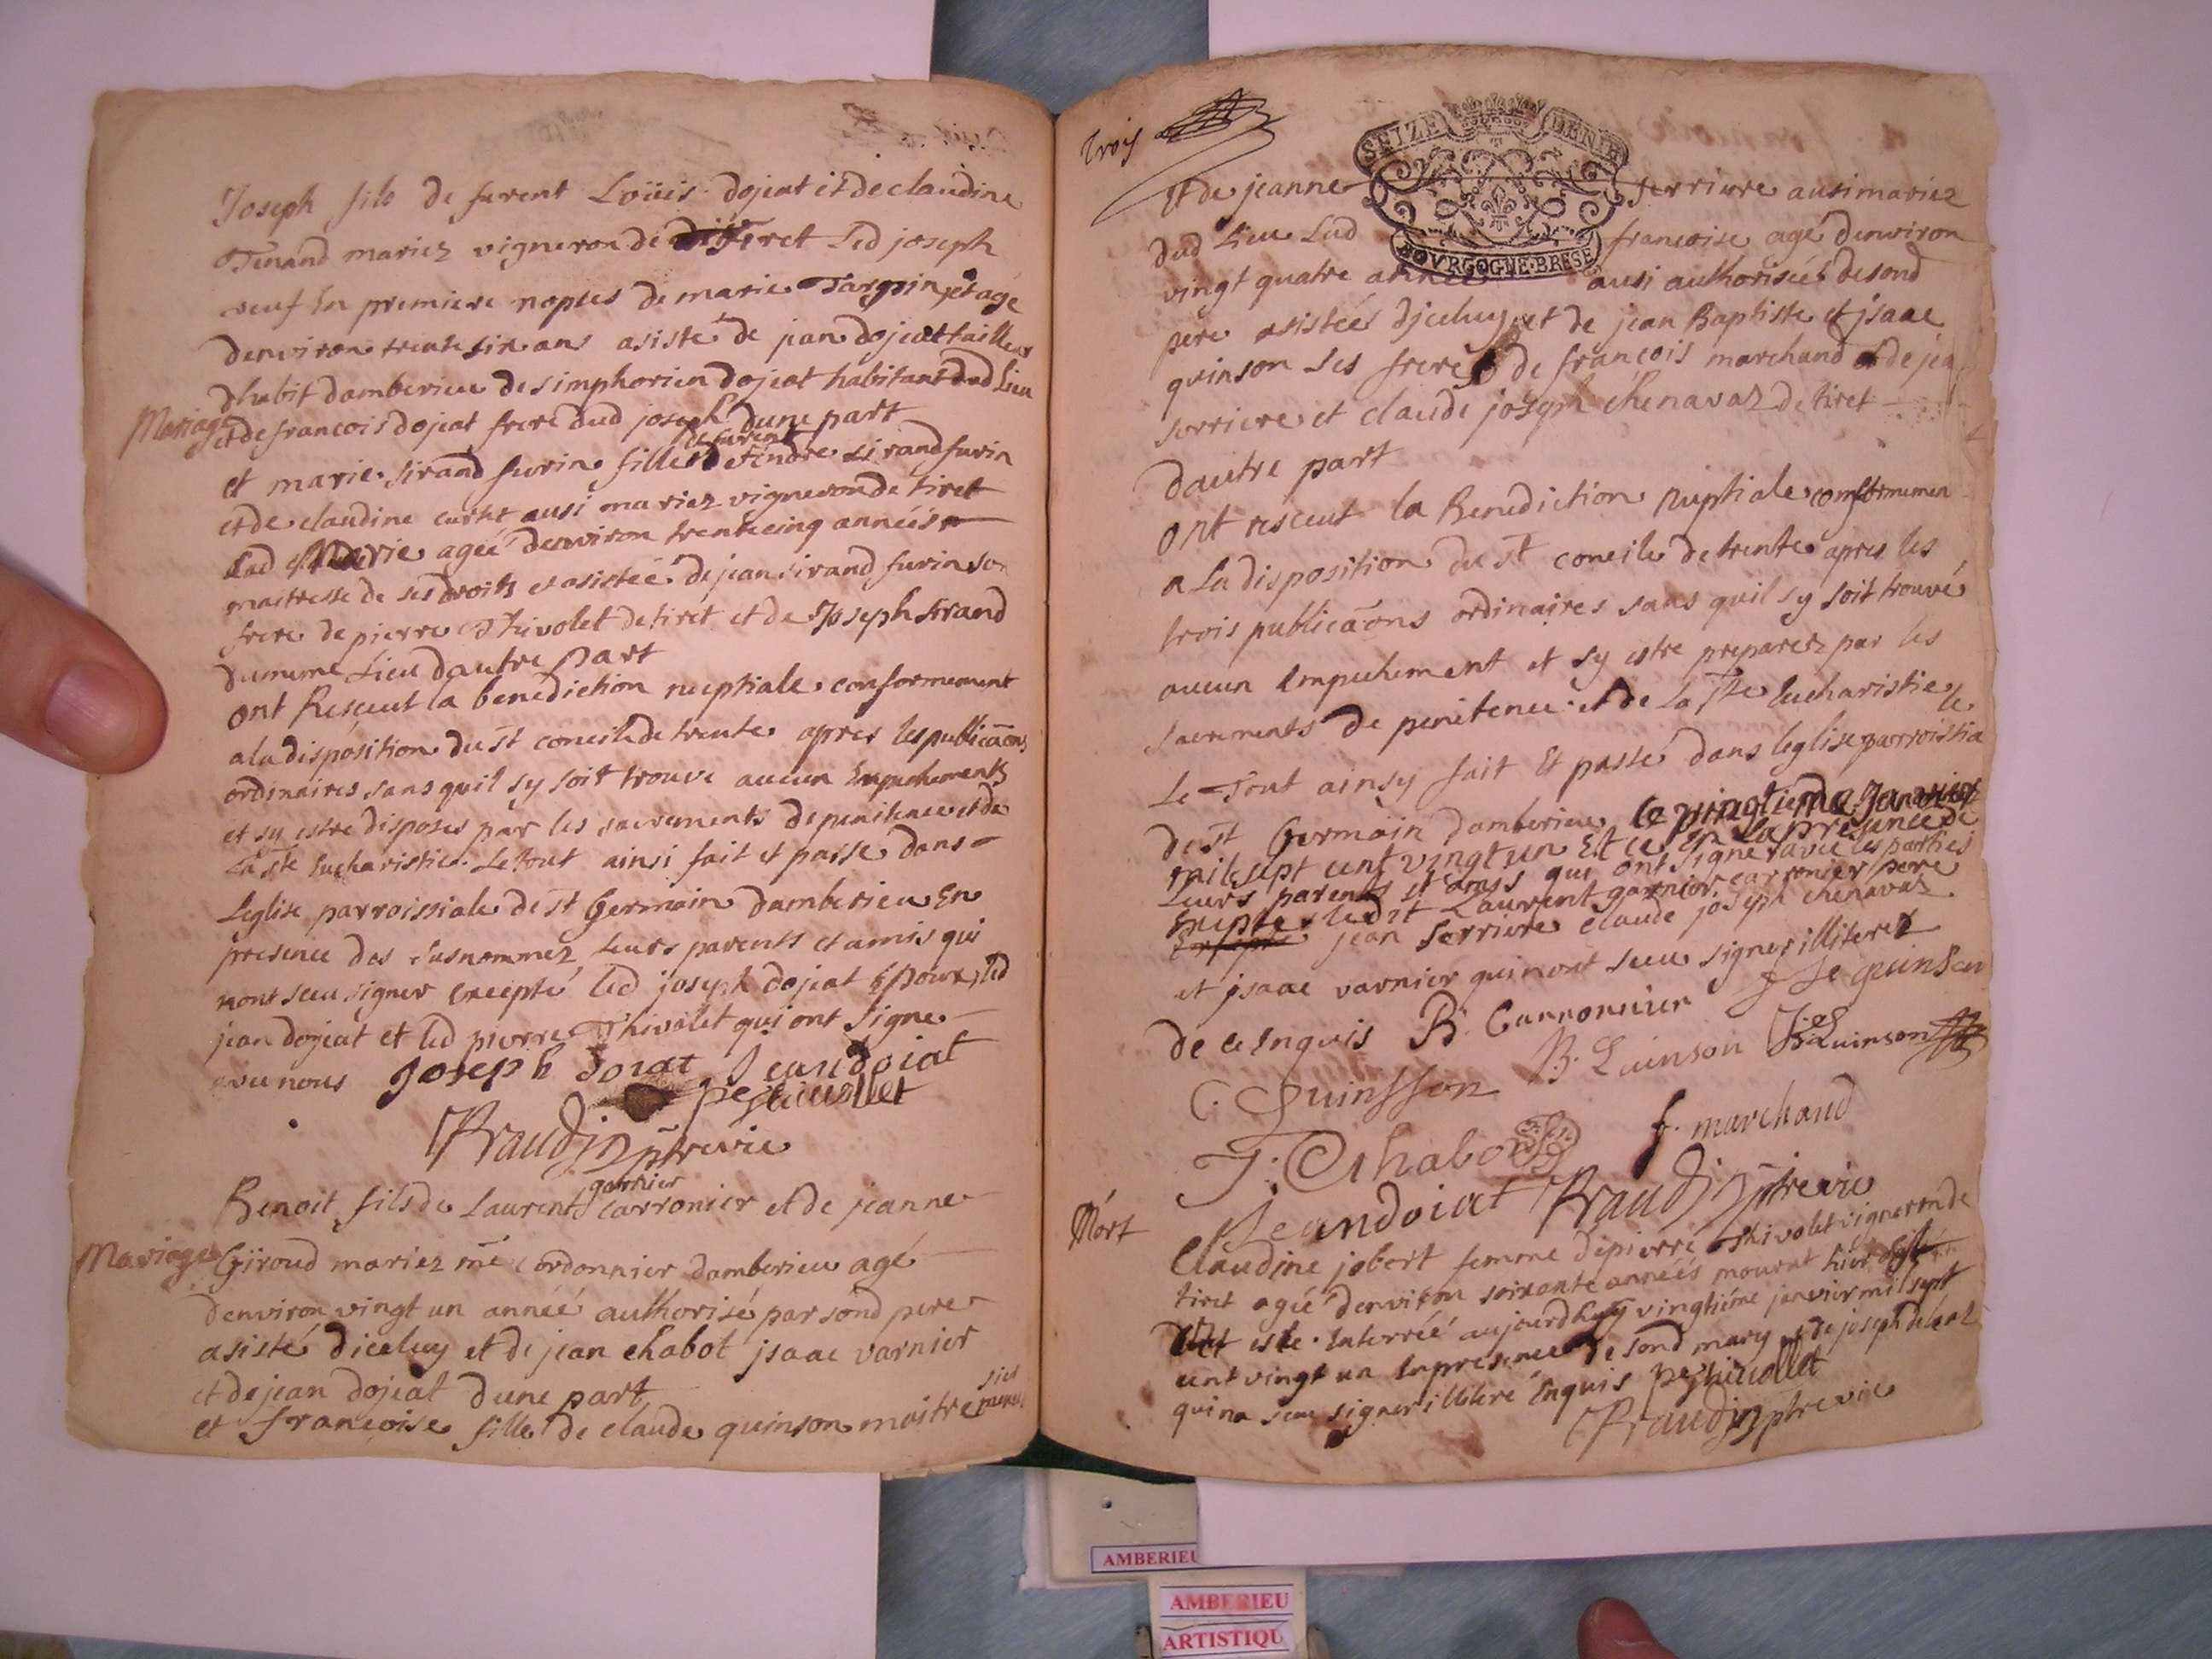 Joseph fils de furent Loüis dojeat et de claudine
Tenand mariez vigneron de tiret led joseph
veuf En premiere nopses de marie Tarpin et agé
denviron trente six ans asisté de jean dojeat tailleur
dhabit damberieu de simphorien dojeat habitant dud Lieu
Mariage
et de francois dojeat frere dud joseph dune part
et marie sirand furin fille de furent Andre sirand furin
et de claudine curtet ausi mariez vigneron de tiret
Lad Marie agéé denviron trente cinq annéés
maitresse de ses droits et asistéé de jean sirand furin son
frere de pierre Thivolet de tiret et de Joseph sirand
du meme Lieu dautre part
ont Resceut la benediction nuptiale conformement
a la disposition du st concile de trente apres les publicaons
ordinaires sans quil sy soit trouve aucun Empechements
et sy estre disposes par les sacrements de penitence et de
La ste Eucharistie. Le tout ainsi fait et passé dans
Leglise parroissiale de st Germain damberieu En
presence des susnommez leurs parents et amis qui
nont sceu signer excepté led joseph dojeat Epoux, led
jean dojeat et led pierre Thivolet qui ont signe
avec nous Joseph doiat Jean doiat
pe thivollet
Praudin ptre vic
Benoit fils de Laurent garnier carronier et de jeanne
Mariage
Giroud mariez me cordonnier damberieu agé
denviron vingt un annéé authorisé par sond pere
asisté diceluy et de jean chabot jsaac varnier
et de jean dojeat dune part
et francoise fille de claude quinson maitre
trois
SEIZE DENIE
BOVRGOGNE·BRESE
Et de jeanne ferriere ausi mariez
dud Lieu Lad francoise agé denviron
vingt quatre année ausi authoriséé de sond
pere asistéé djceluy et de jean Baptiste et jsaac
quinson ses freres de francois marchand et de jean
serriere et claude joseph chenavaz de tiret
dautre part
ont resceut la Benediction nuptiale conformemen
a La disposition du st concile de trente apres les
trois publicaons ordinaires sans quil sy soit trouvé
aucun Empechement et sy estre preparez par les
sacrements de penitence et de La ste Eucharistie le
Le Tout ainsy fait Et passé dans leglise parroissia
de st Germain damberieu le vingtieme Janvier
mil sept cent vingt un Et ce En La presence de
Leurs parents et amis qui ont signe avec les parties
Excepte ledit Laurent garnier carronier pere
jean serriere claude joseph chenavaz
et jsaac varnier qui nont sceu signer illiterez
de ce Enquis B. Carronnier
C. Quinsson B. Quinson Quinson
J. Chabot f. marchand
Jean doiat Praudin ptre vic
Mort
Claudine jobert femme de pierre Thivolet vigneron de
tiret agéé denviron soixante annéés mourut hier
et este Enterréé aujourdhuy vingtiéme janvier mil sept
cent vingt un En presence de sond mary et de joseph
qui na sceu signer illiteré Enquis pe thivollet
Praudin ptre vic
AMBERIEU
AMBERIEU
ARTISTIQU